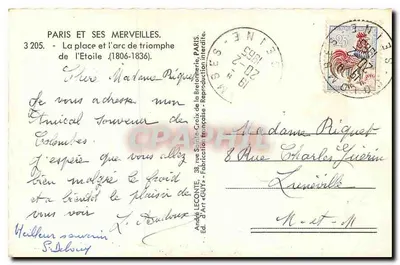 PARIS ET SES MERVEILLES.
3 205. - La place et l'arc de triomphe
de l'Etoile (1806-1836).
Chère Madame Riquet
Je vous adresse mon
Amical souvenir de
Colombes
J'espère que vous allez
bien malgré le froid
et a bientôt le plaisir de
vous voir
Meilleur souvenir
S. Deboux
André LECONTE, 38, rue Sainte-Croix de la Bretonnerie, PARIS.
Ed. d'Art "GUY" - Fabrication française - Reproduction interdite.
SEINE
19 H
20-2
1963
Madame Riquet
8 Rue Charles Guérin
Lunéville
M-et-M